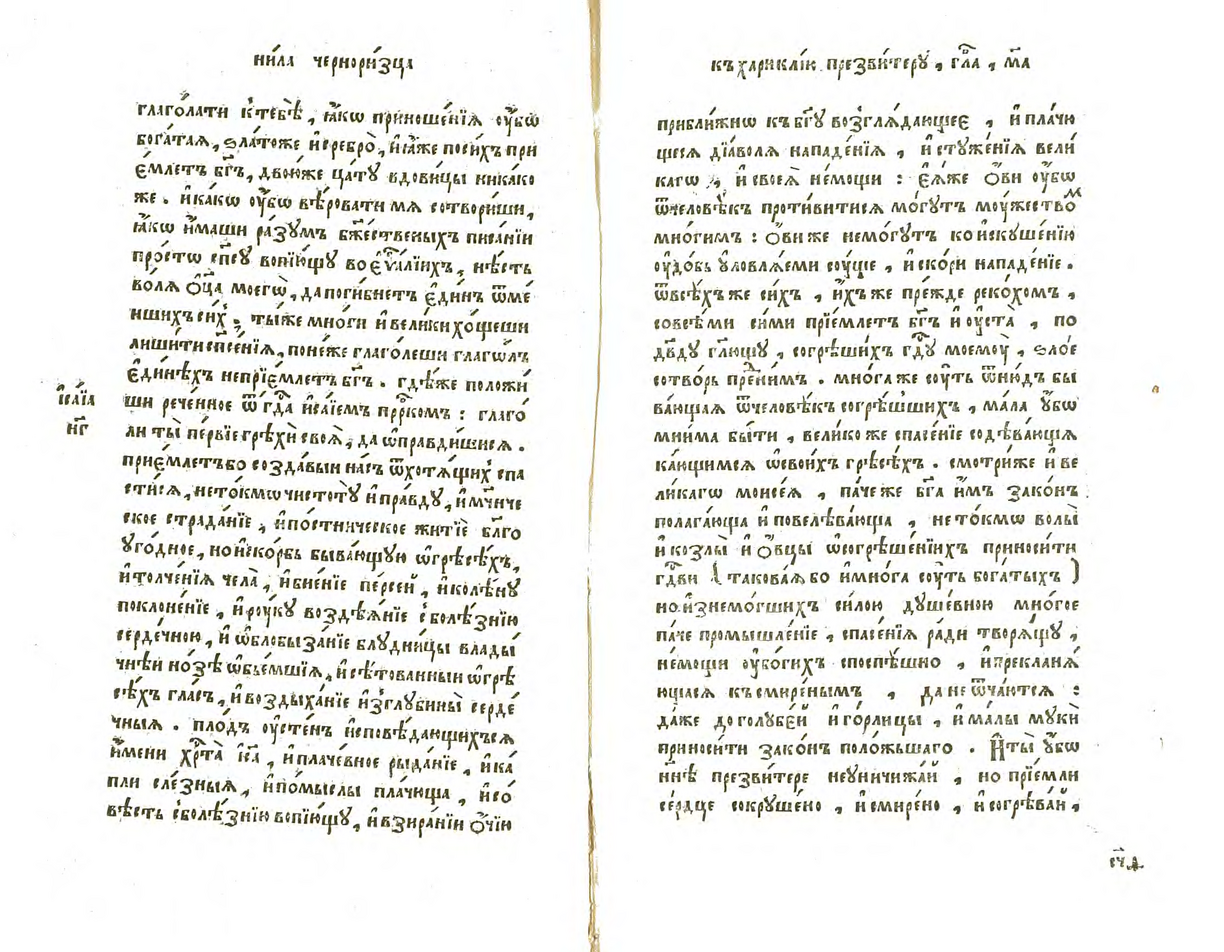 ни́ла черпори́зца
глаго́лати к̾тебѣ̀ , ꙗ҆́кѡ приноше́нїѧ ᲂу҆́бѡ
бога́таѧ , ѕла́тоже и҆сребро̀ , и҆ꙗ҆́же поси́хъ при
е҆́млетъ бг҃ъ , двою́же ца́ту вдови́цы ника́ко
же . и҆ка́кѡ ᲂу҆́бѡ вѣ́ровати мѧ сотвори́ши ,
ꙗ҆́кѡ и҆́маши ра́зумъ бж҃е́ственыхъ писа́нїи
про́стѡ сп҃су вопїю́щу во є҆ѵⷢ҇а́лїихъ , нѣ́сть
волѧ ѻ҆ц҃а̀ моегѡ̀ , да поги́бнетъ є҆ди́нъ ѿ ме́
ншихъ си́хъ . ты́же мно́ги и҆ вели́ки хо́щеши
лиши́ти спⷭ҇е́нїѧ , поне́же глаго́леши глагѡ́лъ
є҆ди́нѣхъ непрїе́млетъ бг҃ъ . гдѣ́же положи́
ши рече́нное ѿ гдⷭ҇а и҆са́їемъ прⷪ҇ро́комъ : глаго́
ли ты̀ пе́рвїе грѣхѝ своѧ̀ , да ѡ҆правди́шисѧ .
прие́млетъ бо созда́выи на́съ ѿ хотѧ́щихъ спа
сти́сѧ , нето́кмѡ чистотꙋ̀ и҆ пра́вду , и҆ мч҃ниче
ское страда́нїе , и҆ по́стническое житїѐ бл҃го
уго́дное , но и҆ ско́рбь быва́ющую ѡ҆ грѣсѣ́хъ ,
и҆ толче́нїѧ чела̀ , и҆ бие́нїе персе́й , и҆ колѣ́ну
поклоне́нїе , и҆ ро́уку воздѣѧ́нїе с҆ болѣ́знїю
серде́чною , и҆ ѡ҆блобыза́нїе блудни́цы влады́
чнѣи но́зѣ ѡ҆бъе́мшїѧ , и҆ сѣ́тованныи ѡ҆ грѣ
сѣ́хъ гла́съ , и҆ воздыха́нїе и҆з̾ глубины̀ серде́
чныѧ . пло́дъ ᲂу҆сте́нъ и҆сповѣ́дающихъсѧ
и҆́мени хрⷭ҇та̀ і҆с҃а , и҆ плаче́вное рыда́нїе , и҆ ка́
пли сле́зныѧ , и҆ по́мыслы пла́чища , и҆ со́
вѣсть с҆ болѣ́знїю вопїю́щу , и҆ взира́нїи ѻ҆́чїю
и҆са́їа
м҃г
къ хариклі́ю презви́теру , гл҃а , м҃а
прибли́жнѡ къ бг҃у возглѧ́дающеє , и҆ пла́чю
щесѧ дїа́волѧ нападе́нїѧ , и҆ стуже́нїѧ вели́
кагѡ , и҆ своеѧ̀ не́мощи : є҆ѧ́же ѻ҆́ви ᲂу҆́бѡ
ѿ человѣ́къ проти́витисѧ мо́гутъ моу́жествоⷨ
мно́гимъ : ѻ҆́ви же немо́гутъ ко и҆скуше́нїю
ᲂу҆до́бь уловлѧ́еми со́уще , и҆ ско́ри нападе́нїе .
ѿ всѣ́хъ же си́хъ , и҆́хъ же пре́жде реко́хомъ ,
со всѣ́ми си́ми прїе́млетъ бг҃ъ и҆ ᲂу҆ста̀ , по
дв҃ду гл҃ющу , согрѣши́хъ гдⷭ҇у моемоу̀ , ѕло́е
сотво́рь пре́ⷣ ни́мъ . мно́га же со́уть ѿню́дъ бы
ва́ющаѧ ѿ человѣ́къ согрѣ́шшихъ , ма́ла у҆́бѡ
мни́ма бы́ти , вели́ко же спасе́нїе содѣва́ющїѧ
ка́ющимсѧ ѡ҆ свои́хъ грѣсѣ́хъ . смотри́же и҆ ве
ли́кагѡ моисе́ѧ , па́че же бг҃а и҆́мъ зако́нъ
полага́юща и҆ повелѣва́юща , не то́кмѡ волы̀
и҆ козлы̀ и҆ ѻ҆́вцы ѡ҆ согрѣше́нїихъ приноси́ти
гдⷭ҇ви ( такова́ѧ бо и҆ мно́га со́уть бога́тыхъ )
но и҆знемо́гшихъ си́лою душе́вною мно́гое
па́че промышле́нїе , спасе́нїѧ ра́ди творѧ́щу ,
не́мощи ᲂу҆бо́гихъ споспѣ́шно , и҆ прекланѧ́
ющасѧ къ смире́нымъ , да не ѿча́ютсѧ :
да́же до голубе́й и҆ го́рлицы , и҆ ма́лы мукѝ
приноси́ти зако́нъ поло́жьшаго . И҆ ты̀ у҆́бѡ
нн҃ѣ презви́тере неуничижа́й , но прїе́мли
се́рдце сокруше́но , и҆ смире́но , и҆ согрѣва́й ,